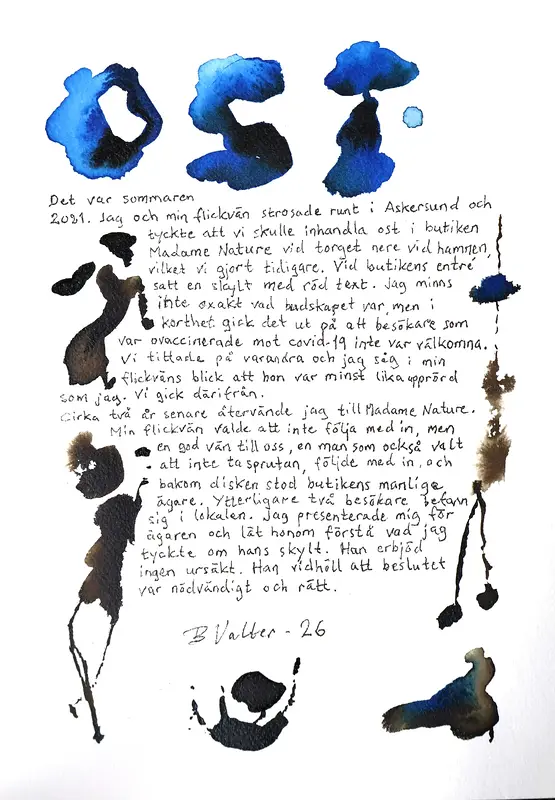 OST
Det var sommaren
2021. Jag och min flickvän strosade runt i Askersund och
tyckte att vi skulle inhandla ost i butiken
Madame Nature vid torget nere vid hamnen,
vilket vi gjort tidigare. Vid butikens entré
satt en skylt med röd text. Jag minns
inte exakt vad budskapet var, men i
korthet gick det ut på att besökare som
var ovaccinerade mot covid-19 inte var välkomna.
Vi tittade på varandra och jag såg i min
flickväns blick att hon var minst lika upprörd
som jag. Vi gick därifrån.
Cirka två år senare återvände jag till Madame Nature.
Min flickvän valde att inte följa med in, men
en god vän till oss, en man som också valt
att inte ta sprutan, följde med in, och
bakom disken stod butikens manlige
ägare. Ytterligare två besökare befann
sig i lokalen. Jag presenterade mig för
ägaren och lät honom förstå vad jag
tyckte om hans skylt. Han erbjöd
ingen ursäkt. Han vidhöll att beslutet
var nödvändigt och rätt.
B Valter - 26